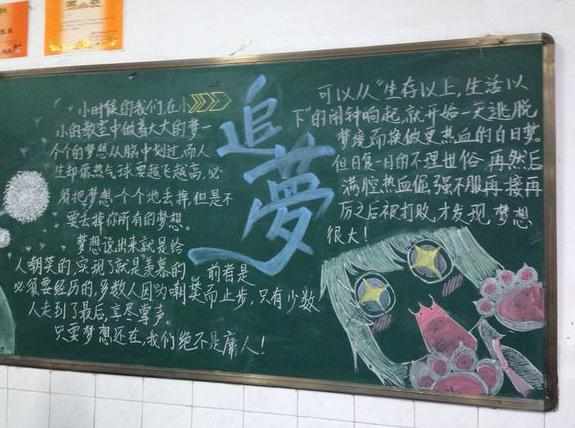 追梦
小时候的我们,在小
小的教室中做着大大的梦一
个个的梦想从脑中划过,而人
生却像热气球要越飞越高,必
须把梦想一个个地丢掉,但是不
要丢掉你所有的梦想。
梦想说出来就是给
人嘲笑的,实现了就是羡慕的。前者是
必须要经历的,多数人因为嘲笑而止步,只有少数
人走到了最后,享尽尊声。
只要梦想还在,我们绝不是废人!
可以从“生存以上,生活以
下”的闹钟响起,就开始一天逃脱
梦境而换做更热血的白日梦。
但日复一日的不理世俗,再然后
满腔热血倔强不服再接再
厉之后被打败,才发现,梦想
很大!